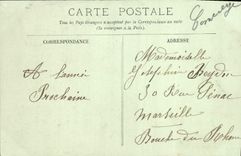 CARTE POSTALE
Tous les Pays étrangers n'acceptent pas la Correspondance au recto
(Se renseigner à la Poste).
CORRESPONDANCE
ADRESSE
A l'année
Prochaine
Mademoiselle
Joséphine
30 Rue Sénac
Marseille
Bouche du Rhone